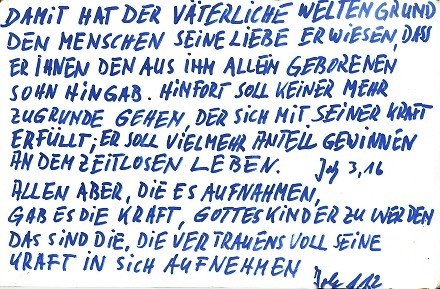 DAMIT HAT DER VÄTERLICHE WELTENGRUND
DEN MENSCHEN SEINE LIEBE ERWIESEN, DASS
ER IHNEN DEN AUS IHM ALLEIN GEBORENEN
SOHN HINGAB. HINFORT SOLL KEINER MEHR
ZUGRUNDE GEHEN, DER SICH MIT SEINER KRAFT
ERFÜLLT; ER SOLL VIELMEHR ANTEIL GEWINNEN
AN DEM ZEITLOSEN LEBEN. Joh 3,16
ALLEN ABER, DIE ES AUFNAHMEN,
GAB ES DIE KRAFT, GOTTESKINDER ZU WERDEN
DAS SIND DIE, DIE VERTRAUENSVOLL SEINE
KRAFT IN SICH AUFNEHMEN Joh 1,12